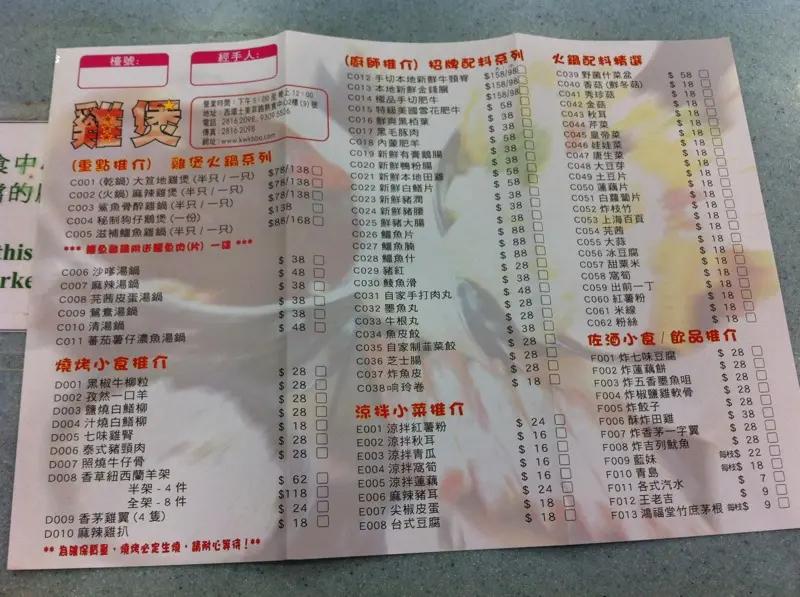 檯號:
經手人:
雞煲
營業時間:下午5:00至晚上12:00
電話:2816 2098, 9309 5526
傳真:2816 2098
網址:www.kwkboo.com
(重點推介) 雞煲火鍋系列
C001 (乾鍋) 大笪地雞煲 (半只/一只) $78/138
C002 (火鍋) 麻辣雞煲 (半只/一只) $78/138
C003 鯊魚骨醉雞鍋 (半只/一只) $78/138
C004 秘制狗仔鵝煲 (一份) $138
C005 滋補鱷魚雞鍋 (半只/一只) $88/168
C006 沙嗲湯鍋 $ 38
C007 麻辣湯鍋 $ 48
C008 芫茜皮蛋湯鍋 $ 38
C009 鴛鴦湯鍋 $ 38
C010 清湯鍋 $ 38
C011 蕃茄薯仔濃魚湯鍋 $ 48
燒烤小食推介
D001 黑椒牛柳粒 $ 28
D002 孜然一口羊 $ 28
D003 鹽燒白鱔柳 $ 28
D004 汁燒白鱔柳 $ 18
D005 七味雞腎 $ 28
D006 泰式豬頸肉 $ 28
D007 照燒牛仔骨 $ 28
D008 香草紐西蘭羊架
半架 - 4 件 $ 62
全架 - 8 件 $118
D009 香茅雞翼 (4 隻) $ 24
D010 麻辣雞扒 $ 18
** 為確保質量,燒烤必定生燒,請耐心等待!**
(廚師推介) 招牌配料系列
C012 手切本地新鮮牛頸脊 $158/98
C013 本地新鮮金錢腱 $158/98
C014 極品手切肥牛 $158/98
C015 特級美國雪花肥牛 $ 58
C016 鮮爽黑栢葉 $ 38
C017 黑毛豚肉 $ 38
C018 內蒙肥羊 $ 58
C019 新鮮有膏鵝腸 $ 38
C020 新鮮鴨粉腸 $ 58
C021 新鮮本地田雞 $ 58
C022 新鮮白鱔片 $ 38
C023 新鮮豬潤 $ 38
C024 新鮮豬腰 $ 38
C025 鮮豬大腸 $ 38
C026 鱷魚片 $ 88
C027 鱷魚腩 $ 88
C028 鱷魚什 $ 88
C029 豬紅 $ 28
C030 鯪魚滑 $ 38
C031 自家手打肉丸 $ 48
C032 墨魚丸 $ 38
C033 牛根丸 $ 28
C034 魚皮餃 $ 28
C035 自家制韮菜餃 $ 28
C036 芝士腸 $ 28
C037 炸魚皮 $ 28
C038 响玲卷 $ 18
涼拌小菜推介
E001 涼拌紅薯粉 $ 24
E002 涼拌秋耳 $ 16
E003 涼拌青瓜 $ 16
E004 涼拌窩筍 $ 16
E005 涼拌蓮藕 $ 16
E006 麻辣豬耳 $ 24
E007 尖椒皮蛋 $ 18
E008 台式豆腐 $ 18
火鍋配料精選
C039 野菌什菜盆 $ 58
C040 香菇 (鮮冬菇) $ 18
C041 秀珍菇 $ 18
C042 金菇 $ 18
C043 秋耳 $ 18
C044 芹菜 $ 18
C045 皇帝菜 $ 18
C046 娃娃菜 $ 18
C047 唐生菜 $ 18
C048 大豆芽 $ 18
C049 土豆片 $ 18
C050 蓮藕片 $ 18
C051 白蘿蔔片 $ 18
C052 炸枝竹 $ 18
C053 上海百頁 $ 18
C054 芫茜 $ 18
C055 大蒜 $ 18
C056 冰豆腐 $ 18
C057 甜粟米 $ 18
C058 窩筍 $ 18
C059 出前一丁 $ 18
C060 紅薯粉 $ 18
C061 米線 $ 18
C062 粉絲 $ 18
佐酒小食/飲品推介
F001 炸七味豆腐 $ 28
F002 炸蓮藕餅 $ 28
F003 炸五香墨魚咀 $ 28
F004 炸椒鹽雞軟骨 $ 28
F005 炸餃子 $ 28
F006 酥炸田雞 $ 38
F007 炸香茅一字翼 $ 28
F008 炸吉列魷魚 $ 28
F009 藍妹 每枝$ 22
F010 青島 每枝$ 18
F011 各式汽水 $ 7
F012 王老吉 $ 9
F013 鴻福堂竹庶茅根 每枝$ 9
食中
的
this
rke